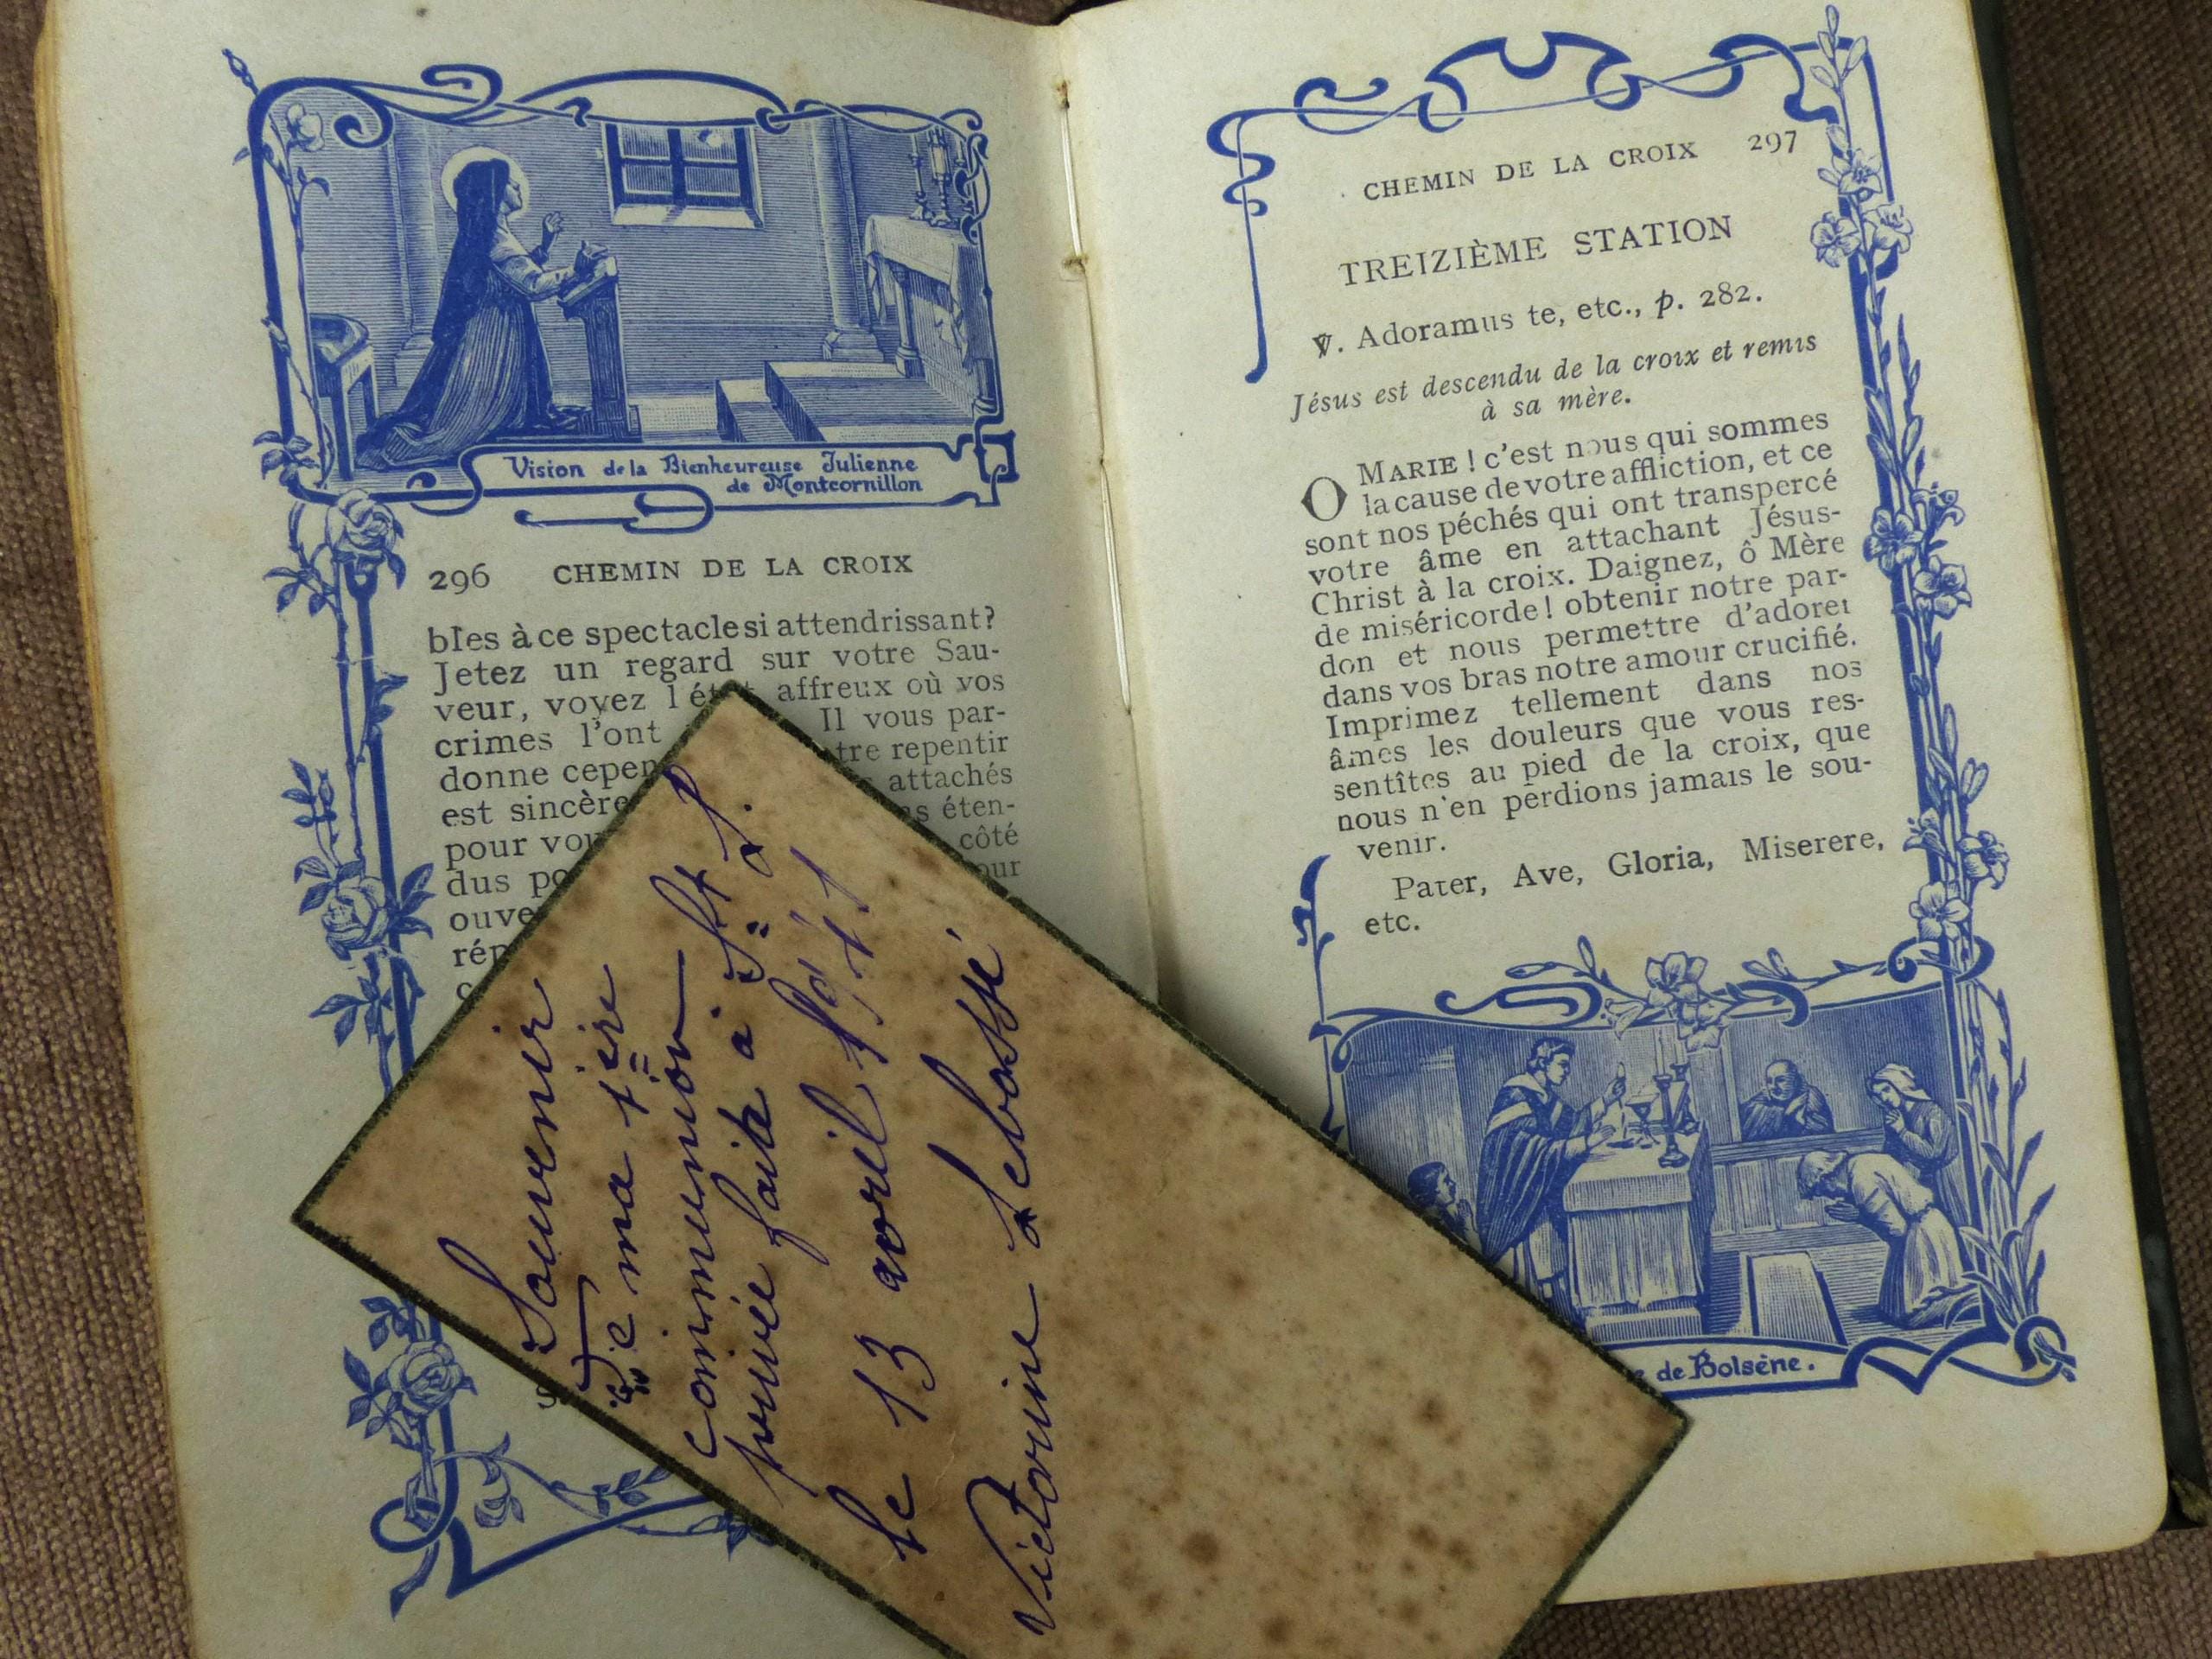 Vision de la Bienheureuse Julienne
de Montcornillon
296 CHEMIN DE LA CROIX
bles à ce spectacle si attendrissant?
Jetez un regard sur votre Sau-
veur, voyez l'état affreux où vos
crimes l'ont Il vous par-
donne repentir
est sincère attachés
pour éten-
dus côté
CHEMIN DE LA CROIX 297
TREIZIÈME STATION
℣. Adoramus te, etc., p. 282.
Jésus est descendu de la croix et remis
à sa mère.
O MARIE ! c'est nous qui sommes
la cause de votre affliction, et ce
sont nos péchés qui ont transpercé
votre âme en attachant Jésus-
Christ à la croix. Daignez, ô Mère
de miséricorde ! obtenir notre par-
don et nous permettre d'adorer
dans vos bras notre amour crucifié.
Imprimez tellement dans nos
âmes les douleurs que vous res-
sentîtes au pied de la croix, que
nous n'en perdions jamais le sou-
venir.
Pater, Ave, Gloria, Miserere,
etc.
de Bolsène.
Souvenir
De ma 1ère
communion
privée faite à
le 13 avril 1911
Victorine Lebossé